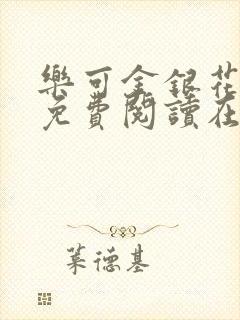 樂可金銀花
免費閱讀在
葉德基